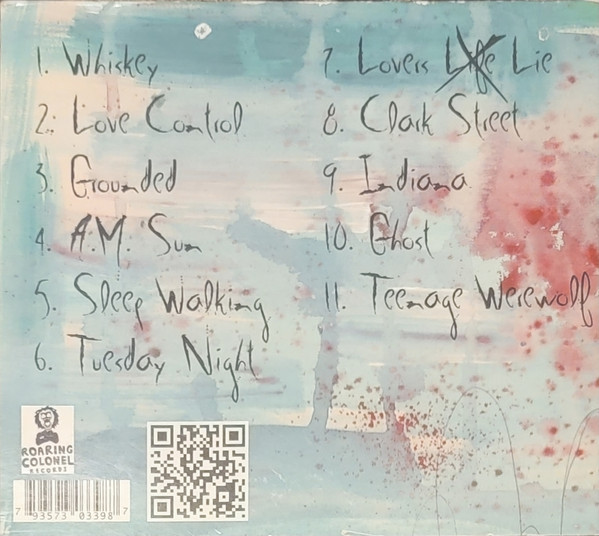 1. Whiskey
2. Love Control
3. Grounded
4. A.M. Sun
5. Sleep Walking
6. Tuesday Night
7. Lovers Life Lie
8. Clark Street
9. Indiana
10. Ghost
11. Teenage Werewolf
ROARING
COLONEL
RECORDS
7 93573 03398 7